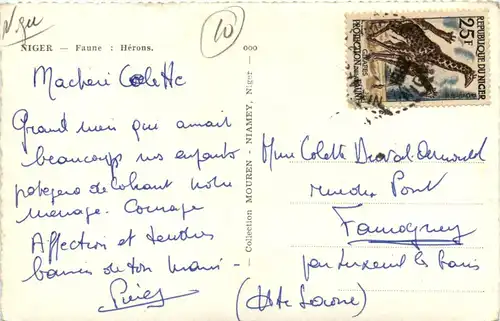 Niger
10
NIGER — Faune : Hérons.
000
REPUBLIQUE DU NIGER
25F
GIRAFES
PROTECTION DE LA FAUNE
Collection MOUREN - NIAMEY, Niger —
Ma chérie Colette
Grand merci qui aimait
beaucoup nos enfants
notre
ménage. Courage
Affection et tendres
baisers de ton mari -
Mme Colette
rue du Pont
Famogney
par Luxeuil les bains
(Hte Saone)